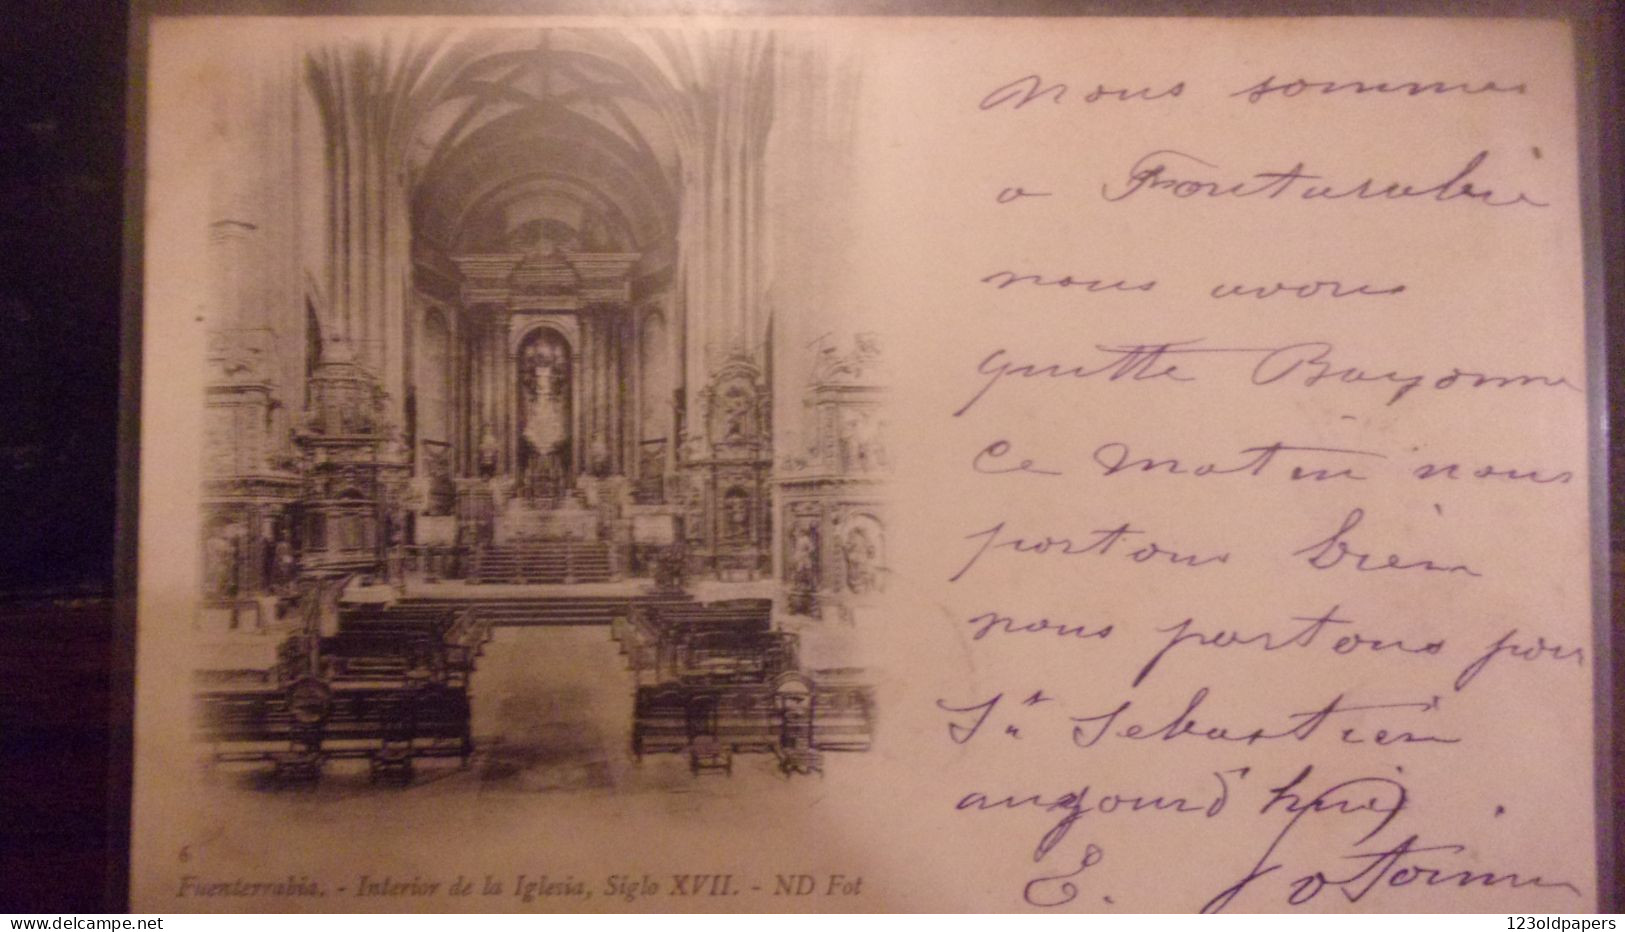 nous sommes
a Fontarabie
nous avons
quitté Bayonne
ce matin nous
portons bien
nous partons pour
St Sebastien
aujourd'hui
E.
6
Fuenterrabia. - Interior de la Iglesia, Siglo XVII. - ND Fot
123oldpapers